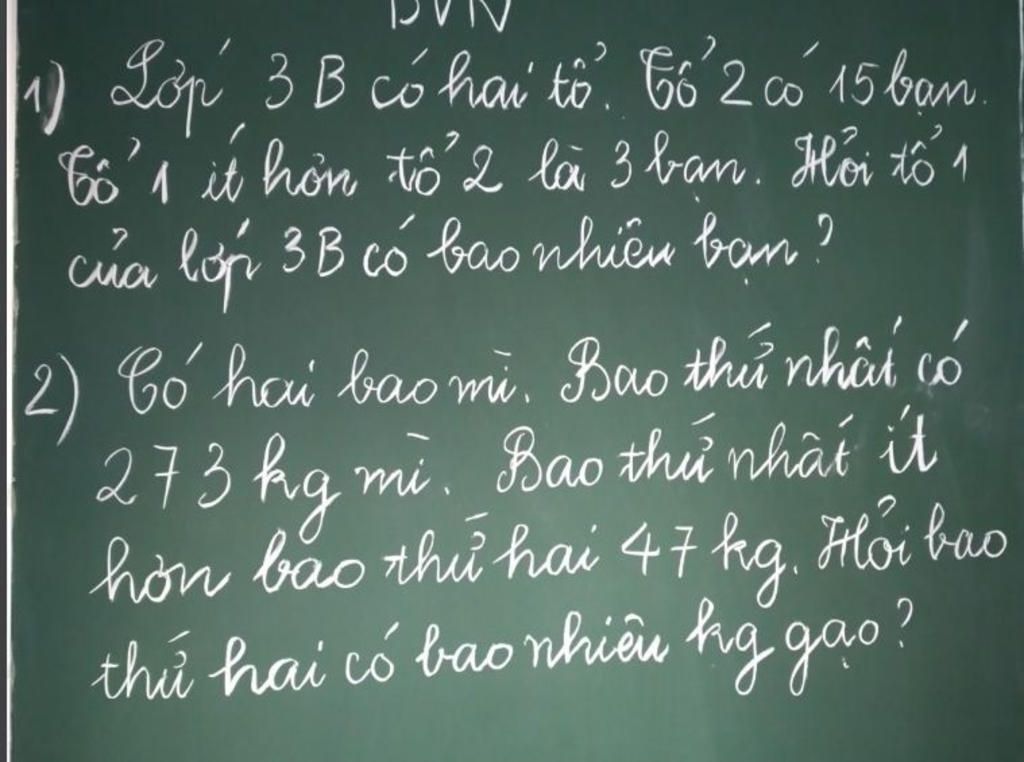 BVN
1) Lớp 3B có hai tổ. Tổ 2 có 15 bạn.
Tổ 1 ít hơn tổ 2 là 3 bạn. Hỏi tổ 1
của lớp 3B có bao nhiêu bạn?
2) Có hai bao mì. Bao thứ nhất có
273 kg mì. Bao thứ nhất ít
hơn bao thứ hai 47 kg. Hỏi bao
thứ hai có bao nhiêu kg gạo?